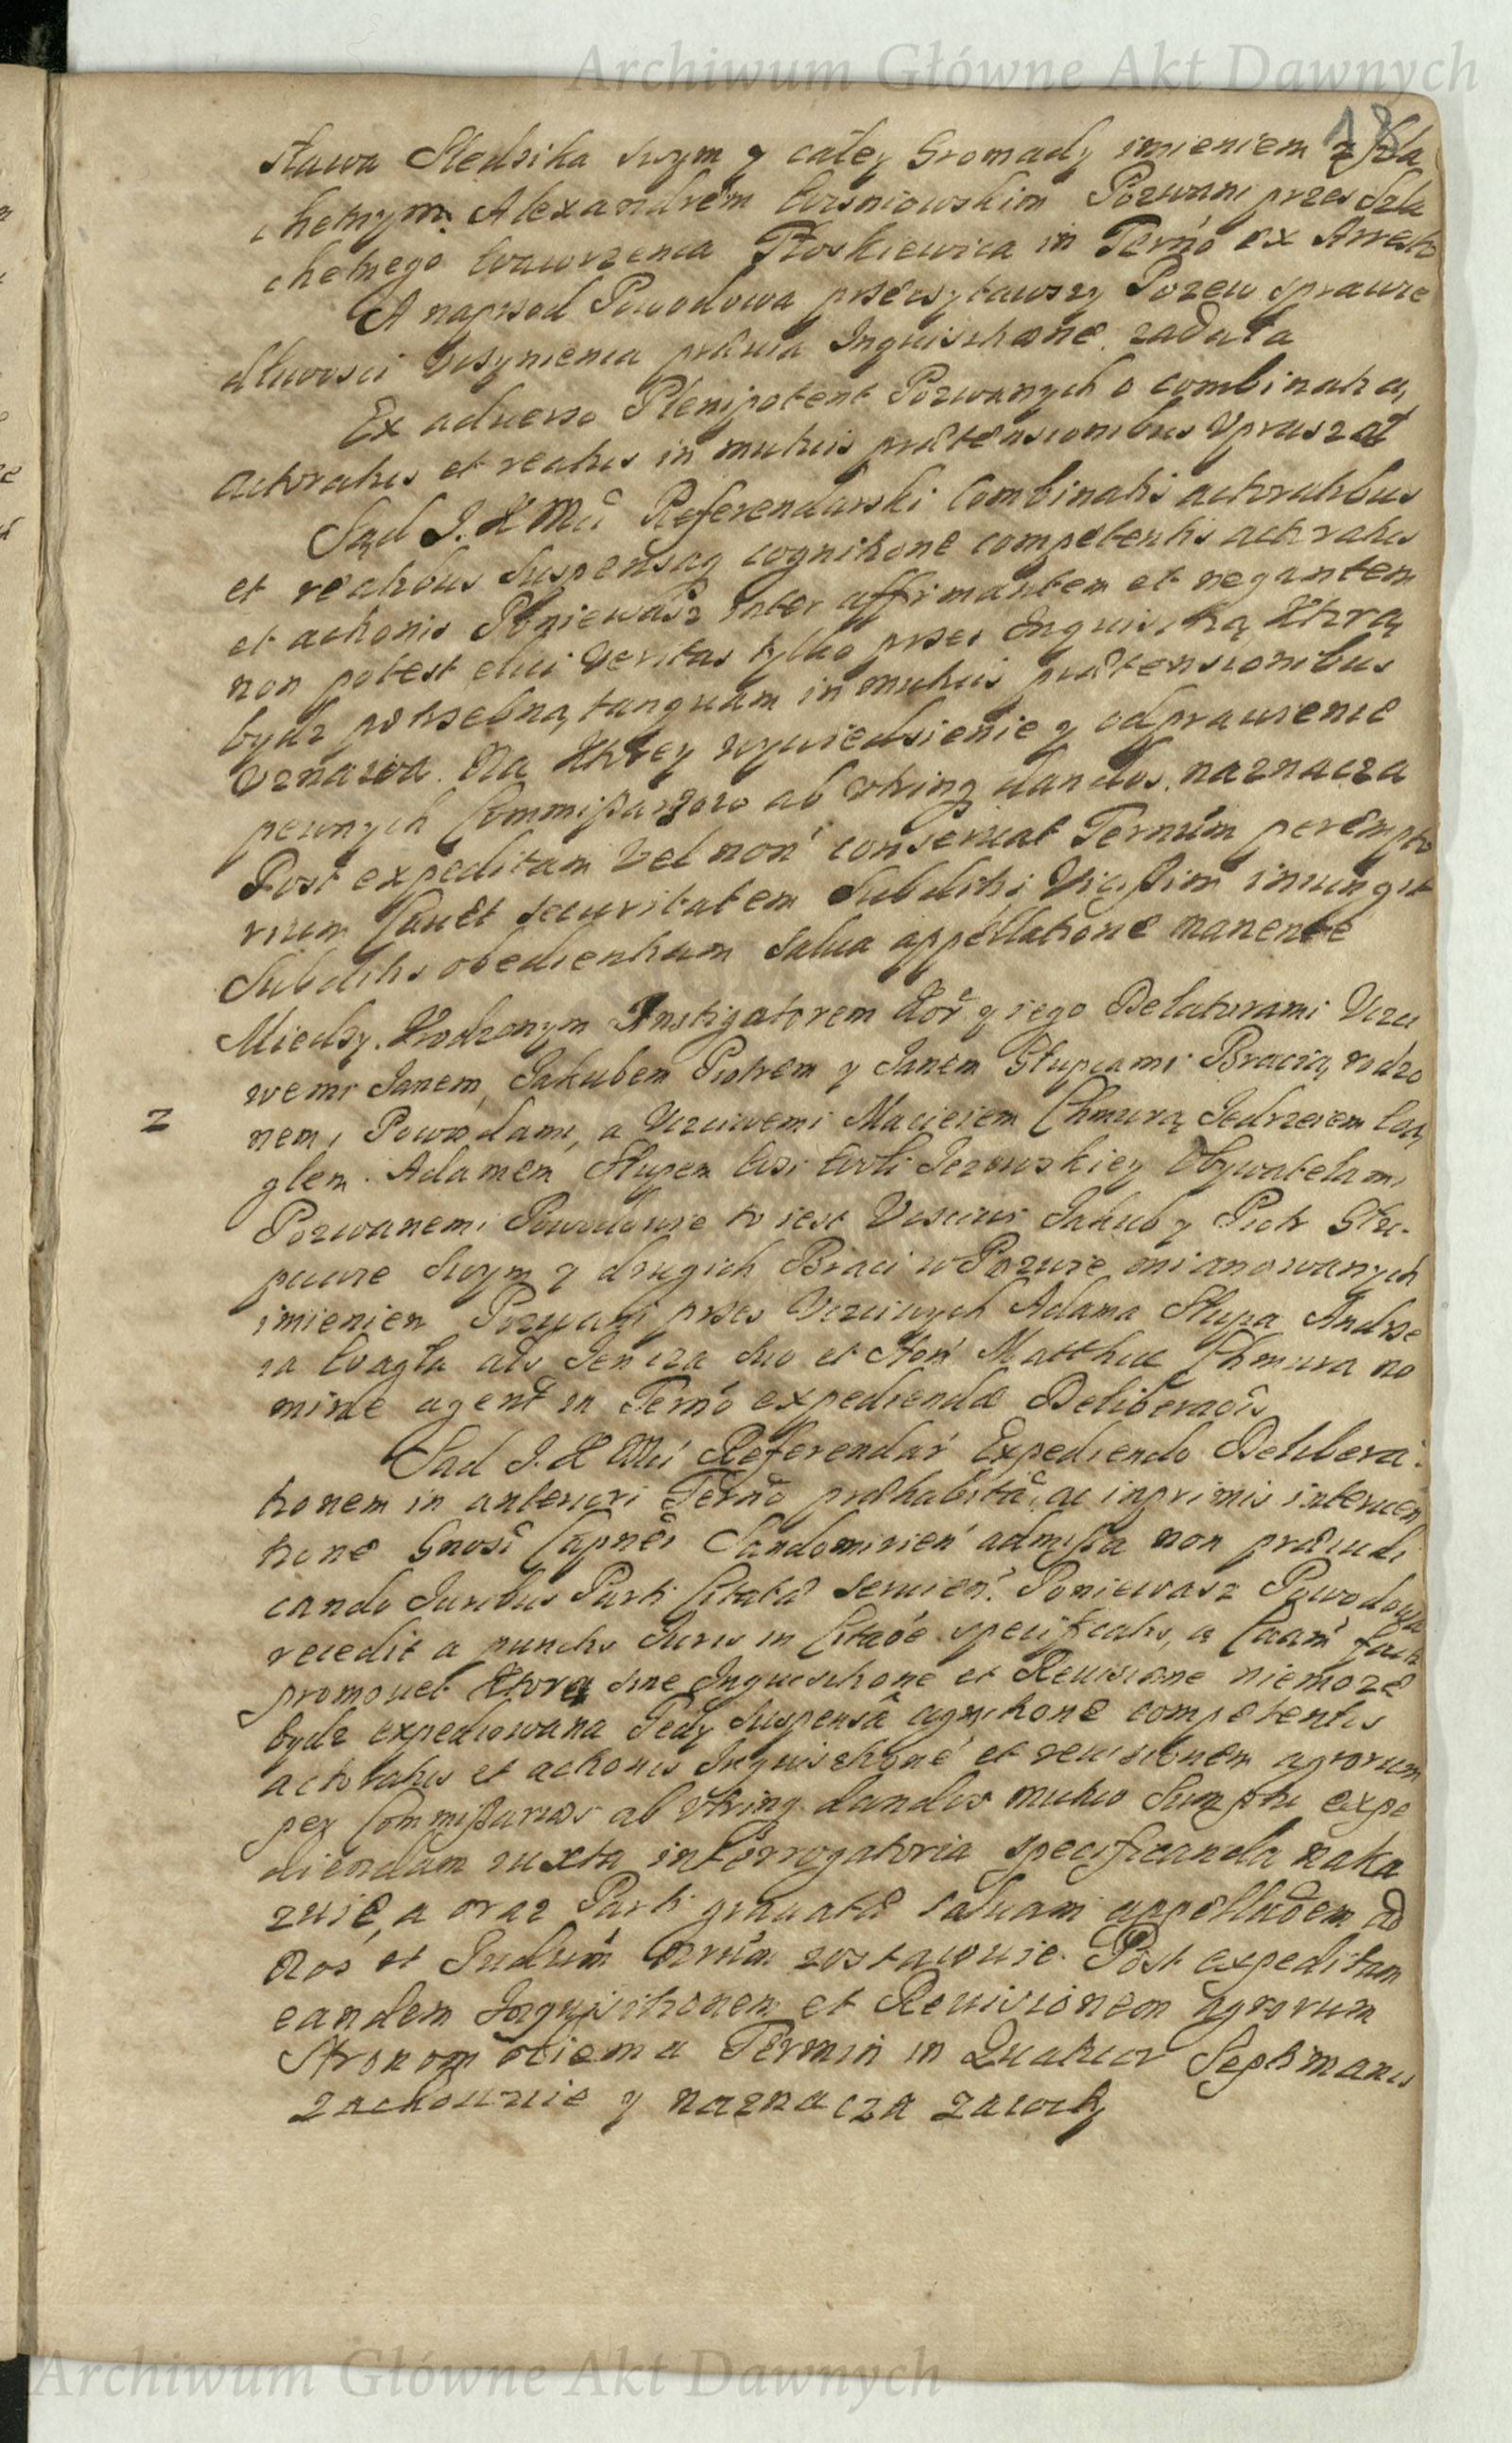 Archiwum Główne Akt Dawnych
18
sława Sledzika swym y całey Gromady imieniem z Szla
chetnym Alexandrem Wisniowskim Pozwani przez Szla
chetnego Wawrzenca Płoskiewica in Termo ex Arresto
A naprzod Powodowa przeczytawszy Pozew sprawie
dliwosci uczynienia prævia Inquisitione żądała
Ex adverso Plenipotent Pozwanych o combinatią
actoratus et reatus in mutuis prætensionibus upraszał
Sąd J. K Mci Referendarski Combinatis actoratibus
et reatibus suspensaq cognitione competentis actoratus
et actionis Poniewasz inter affirmantem et negantem
non potest elici veritas tylko przez Inquisitią ktorą
bydz potrzebną tanquam in mutuis prætensionibus
uznawa. Na ktorey wywiedzienie y odprawienie
pewnych Commissarzow ab utrinq dandos naznacza
Post expeditam vel non conservat Terminum perempto
rium Cavet securitatem Subditis Vicissim iniungit
Subditis obedientiam salva appellatione manente
Miedzy Urodzonym Instigatorem Kor y iego Delatorami Uczci
wemi Janem, Jakubem Piotrem y Janem Słupcami Bracią rodzo
2
nemi Powodami, a Uczciwemi Macieiem Chmurą Jedrzeiem Wą
glem Adamem Słupem Wsi Woli Jezowskiey Obywatelami
Pozwanemi Powodowie to iest Uczciwi Jakub y Piotr Słu-
powie swym y drugich Braci w Pozwie mianowanych
imieniem Pozwani przez Uczciwych Adama Słupa Andrze
ia Wągla als Jencza suo et Hon Matthiæ Chmura no
mine agent in Termo expediendæ Deliberaois
Sad J. K Mci Referendar Expediendo Delibera-
tionem in anteriori Termo præhabitâ, ac inprimis interven
tione Gnosi Capnei Sandomirien admissa non præiudi
cando Iuribus Parti Citatæ servien. Poniewasz Powodowa
recedit a punctis Iuris in Citaoe specificatis, a Caam facti
promovet Ktora sine Inquisitione et Revisione niemoze
bydz expediowana Tedy suspensâ agnitione competentis
actoratus et actionis Inquisitione et revisionem agrorum
per Commissarios ab utrinq dandos mutuo Sumptu expe
diendam iuxta interrogatoria specificanda naka
zuie, a oraz Parti gravatæ salvam appellaoem ad
Nos et Iudium nrum zostawuie. Post expeditam
eandem Inquisitionem et Revisionem agrorum
Stronom obiema Termin in Quatuor Septimanis
zachowuie y naznacza zawity
Archiwum Główne Akt Dawnych